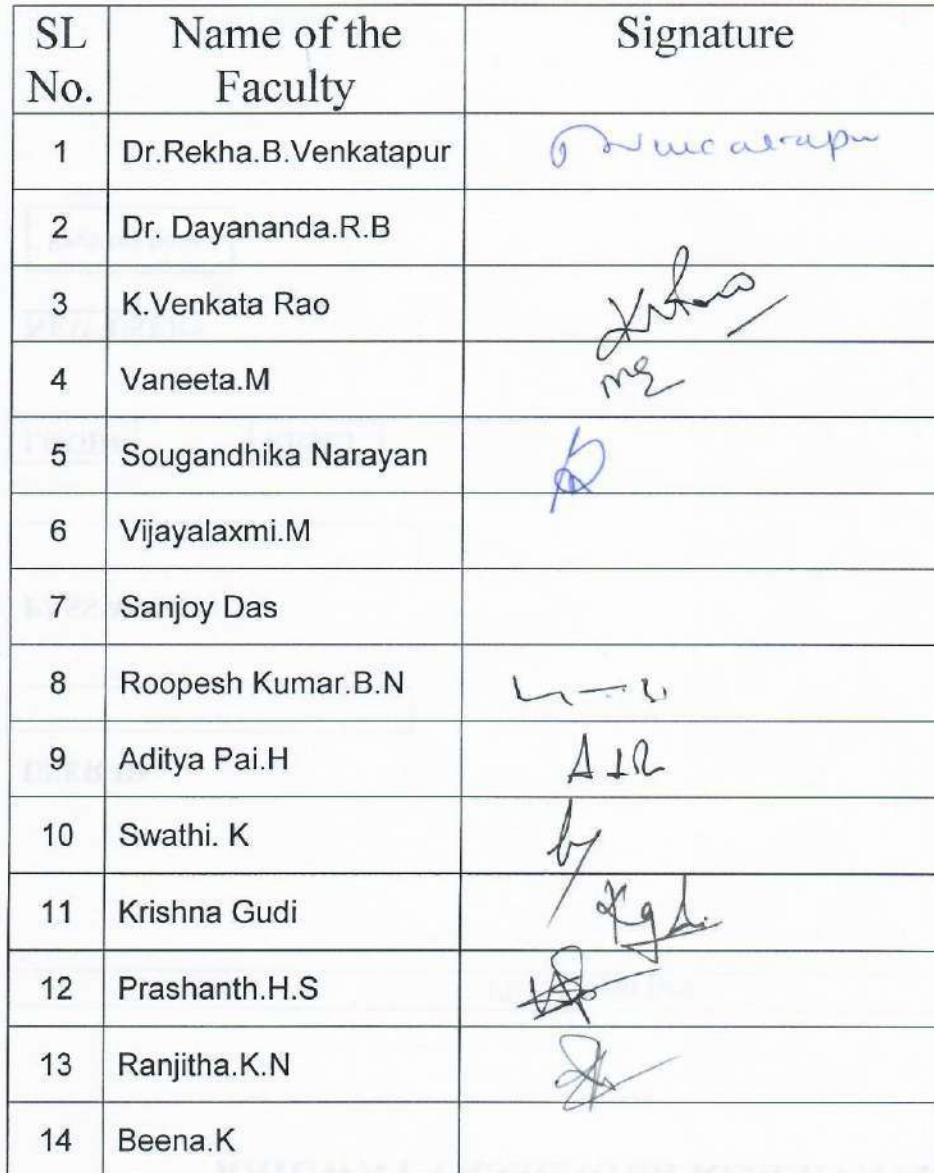 SL No. Name of the Faculty Signature
1 Dr.Rekha.B.Venkatapur
2 Dr. Dayananda.R.B
3 K.Venkata Rao
4 Vaneeta.M
5 Sougandhika Narayan
6 Vijayalaxmi.M
7 Sanjoy Das
8 Roopesh Kumar.B.N
9 Aditya Pai.H
10 Swathi. K
11 Krishna Gudi
12 Prashanth.H.S
13 Ranjitha.K.N
14 Beena.K